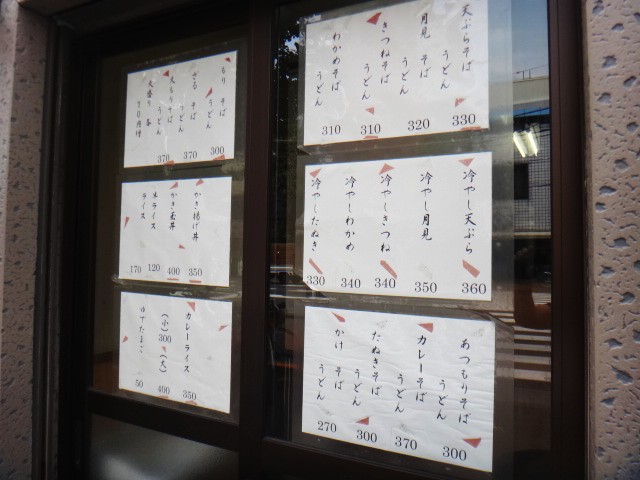 天ぷらそば
うどん
330
月見そば
うどん
320
きつねそば
うどん
310
わかめそば
うどん
310
冷やし天ぷら
360
冷やし月見
350
冷やしきつね
340
冷やしわかめ
340
冷やしたぬき
330
あつもりそば
うどん
300
カレーそば
うどん
370
たぬきそば
うどん
300
かけそば
うどん
270
もりそば
うどん
300
ざるそば
うどん
370
大もりそば
うどん
370
大盛り各70円増
かき揚げ丼
350
かき玉丼
400
半ライス
120
ライス
170
カレーライス
350
(小)300
(大)
400
ゆでたまご
50